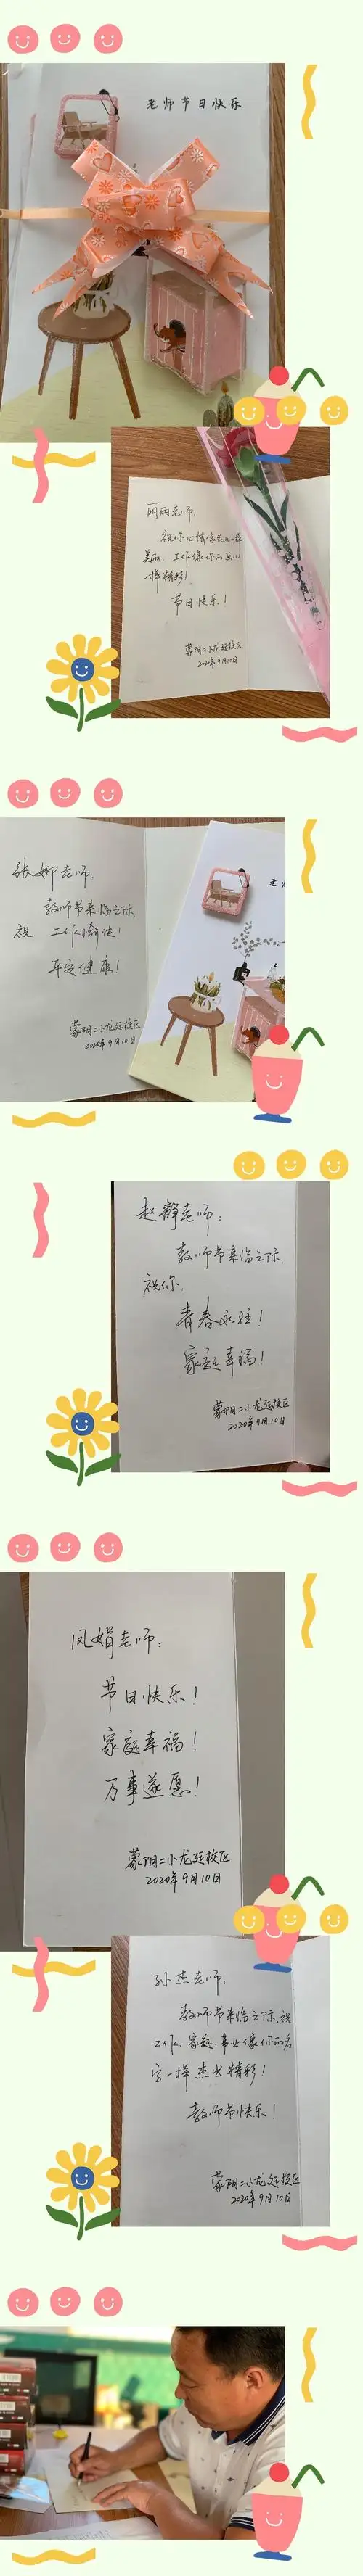 老师节日快乐
丽丽老师:
祝你心情像花儿一样
美丽。工作像你的画儿
一样精彩!
节日快乐!
蒙阴二小龙廷校区
2020年9月10日
张娜老师:
教师节来临之际,
祝 工作愉快!
平安健康!
蒙阴二小龙廷校区
2020年9月10日
老
赵静老师:
教师节来临之际,
祝你,
青春永驻!
家庭幸福!
蒙阴二小龙廷校区
2020年9月10日
凤娟老师:
节日快乐!
家庭幸福!
万事遂愿!
蒙阴二小龙廷校区
2020年9月10日
孙杰老师,
教师节来临之际,祝
工作、家庭、事业像你的名
字一样杰出精彩!
教师节快乐!
蒙阴二小龙廷校区
2020年9月10日